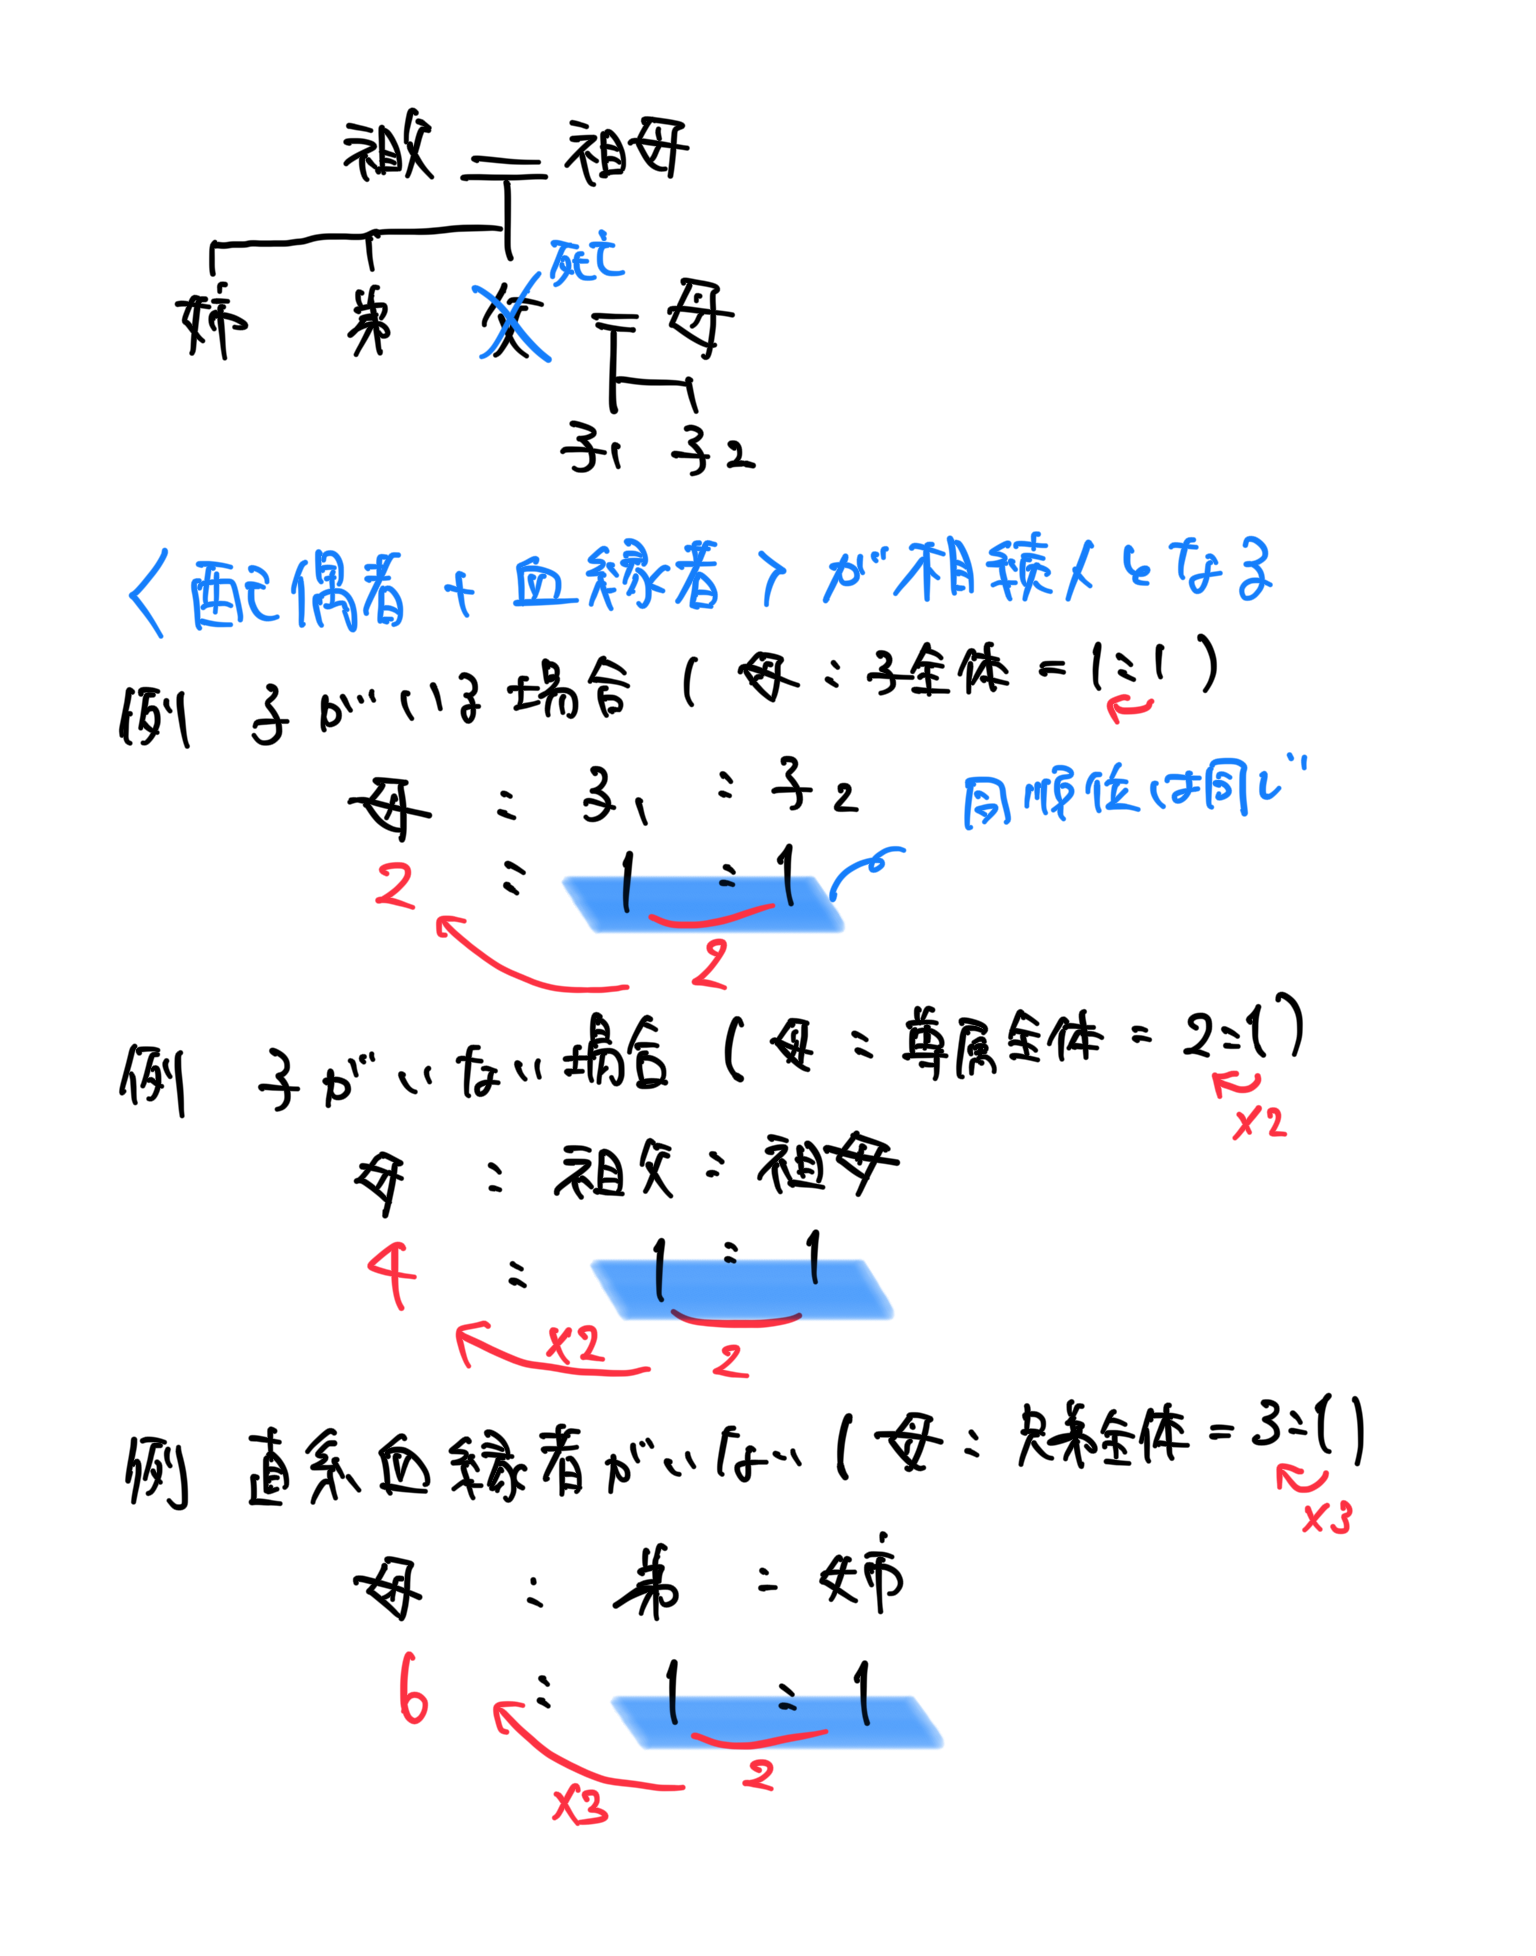 祖父 祖母
死亡
姉 弟 父 母
子1 子2
<配偶者+血縁者>が相続人となる
例 子がいる場合(母:子全体=1:1)
母 : 子1 : 子2 同順位は同じ
2 : 1 : 1
2
例 子がいない場合(母:尊属全体=2:1)
×2
母 : 祖父 : 祖母
4 : 1 : 1
×2 2
例 直系血縁者がいない(母:兄弟全体=3:1)
×3
母 : 弟 : 姉
6 : 1 : 1
×3 2